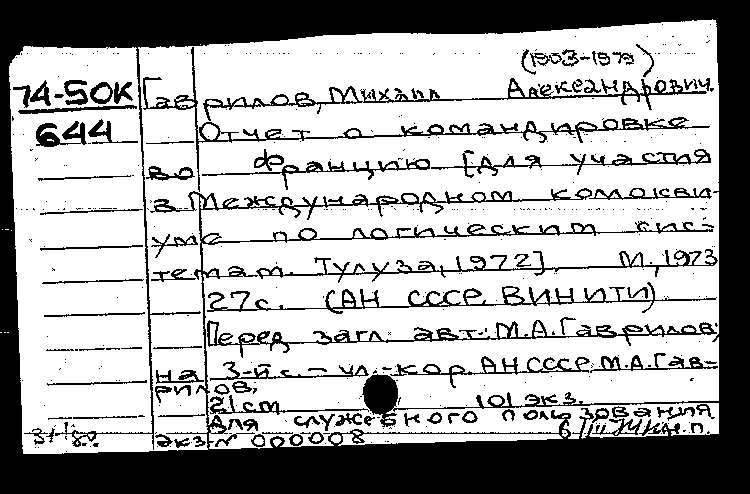 (1903-1979)
74-50К Гаврилов, Михаил Александрович.
644 Отчет о командировке
во Францию [для участия
в Международном комокви-
уме по логическим сис-
темам. Тулуза, 1972]. М., 1973
27с. (АН СССР. ВИНИТИ)
Перед загл. авт.: М.А.Гаврилов;
на 3-й с. - чл.-кор. АН СССР М.А.Гав-
рилов,
21 см 101 экз.
Для служебного пользования
экз. № 000008